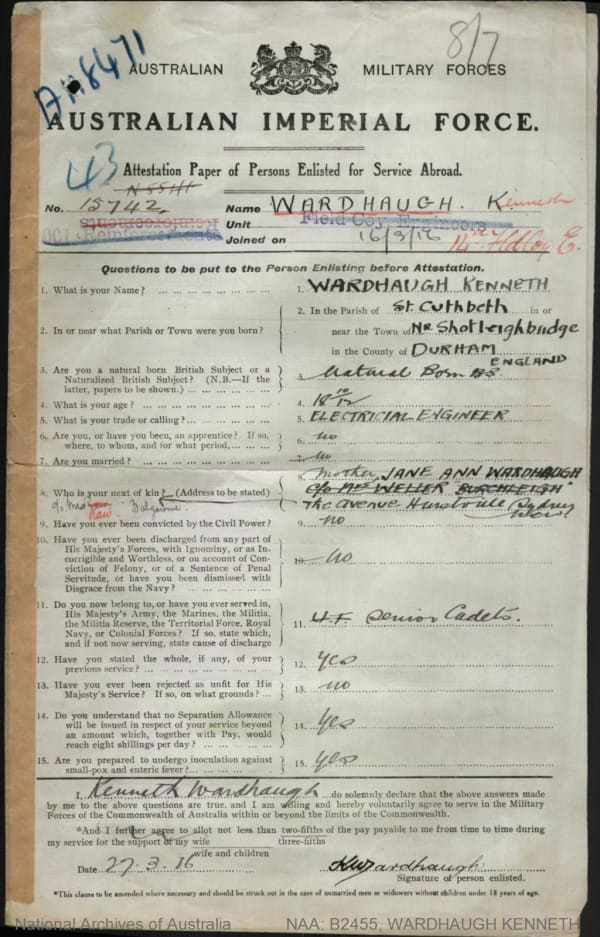 AH8471
8/7
AUSTRALIAN MILITARY FORCES
AUSTRALIAN IMPERIAL FORCE.
43
Attestation Paper of Persons Enlisted for Service Abroad.
No. 15742 Name WARDHAUGH. Kenneth
Reinforcements Unit Field Coy Engineers
OCT Reinforcements Joined on 16/3/16 14th Fld Coy E.
Questions to be put to the Person Enlisting before Attestation.
1. What is your Name? 1. WARDHAUGH KENNETH
2. In or near what Parish or Town were you born? 2. In the Parish of St. Cuthbeth in or
near the Town of Nr Shotleighbridge
in the County of DURHAM ENGLAND
3. Are you a natural born British Subject or a
Naturalized British Subject? (N.B.—If the
latter, papers to be shown.) 3. Natural Born BS
4. What is your age? 4. 18 10/12
5. What is your trade or calling? 5. ELECTRICIAL ENGINEER
6. Are you, or have you been, an apprentice? If so,
where, to whom, and for what period 6. no
7. Are you married? 7. no
8. Who is your next of kin? (Address to be stated) 8. Mother, JANE ANN WARDHAUGH
c/o Mrs WELLER BURCHLEIGH
The Avenue Hurstville Sydney
NSW
9. Have you ever been convicted by the Civil Power? 9. no
10. Have you ever been discharged from any part of
His Majesty's Forces, with Ignominy, or as In-
corrigible and Worthless, or on account of Con-
viction of Felony, or of a Sentence of Penal
Servitude, or have you been dismissed with
Disgrace from the Navy? 10. no
11. Do you now belong to, or have you ever served in,
His Majesty's Army, the Marines, the Militia,
the Militia Reserve, the Territorial Force, Royal
Navy, or Colonial Forces? If so, state which,
and if not now serving, state cause of discharge 11. 4.F. Senior Cadets.
12. Have you stated the whole, if any, of your
previous service? 12. yes
13. Have you ever been rejected as unfit for His
Majesty's Service? If so, on what grounds? 13. no
14. Do you understand that no Separation Allowance
will be issued in respect of your service beyond
an amount which, together with Pay, would
reach eight shillings per day? 14. yes
15. Are you prepared to undergo inoculation against
small-pox and enteric fever? 15. yes
I, Kenneth Wardhaugh do solemnly declare that the above answers made
by me to the above questions are true, and I am willing and hereby voluntarily agree to serve in the Military
Forces of the Commonwealth of Australia within or beyond the limits of the Commonwealth.
*And I further agree to allot not less than two-fifths of the pay payable to me from time to time during
three-fifths
my service for the support of my wife
wife and children
Date 27.3.16 KWardhaugh
Signature of person enlisted.
*This clause to be amended where necessary and should be struck out in the case of unmarried men or widowers without children under 18 years of age.
National Archives of Australia NAA: B2455, WARDHAUGH KENNETH